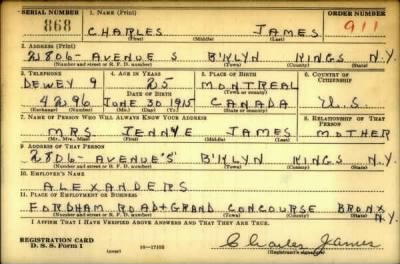 SERIAL NUMBER 1. NAME (Print) ORDER NUMBER
868 CHARLES JAMES 911
(First) (Middle) (Last)
2. ADDRESS (Print)
2806- AVENUE S B'KLYN KINGS N.Y.
(Number and street or R. F. D. number) (Town) (County) (State)
3. TELEPHONE 4. AGE IN YEARS 5. PLACE OF BIRTH 6. COUNTRY OF CITIZENSHIP
DEWEY 9 25 MONTREAL
DATE OF BIRTH (Town or county)
4296 JUNE 30 1915 CANADA U.S.
(Exchange) (Number) (Mo.) (Day) (Yr.) (State or country)
7. NAME OF PERSON WHO WILL ALWAYS KNOW YOUR ADDRESS 8. RELATIONSHIP OF THAT PERSON
MRS. JENNYE JAMES MOTHER
(Mr., Mrs., Miss) (First) (Middle) (Last)
9. ADDRESS OF THAT PERSON
2806- AVENUE "S" B'KLYN KINGS N.Y.
(Number and street or R. F. D. number) (Town) (County) (State)
10. EMPLOYER'S NAME
ALEXANDERS
11. PLACE OF EMPLOYMENT OR BUSINESS
FORDHAM ROAD + GRAND CONCOURSE BRONX N.Y.
(Number and street or R. F. D. number) (Town) (County) (State)
I AFFIRM THAT I HAVE VERIFIED ABOVE ANSWERS AND THAT THEY ARE TRUE.
REGISTRATION CARD
D. S. S. Form 1 (over) 16—17105 Charles James
(Registrant's signature)